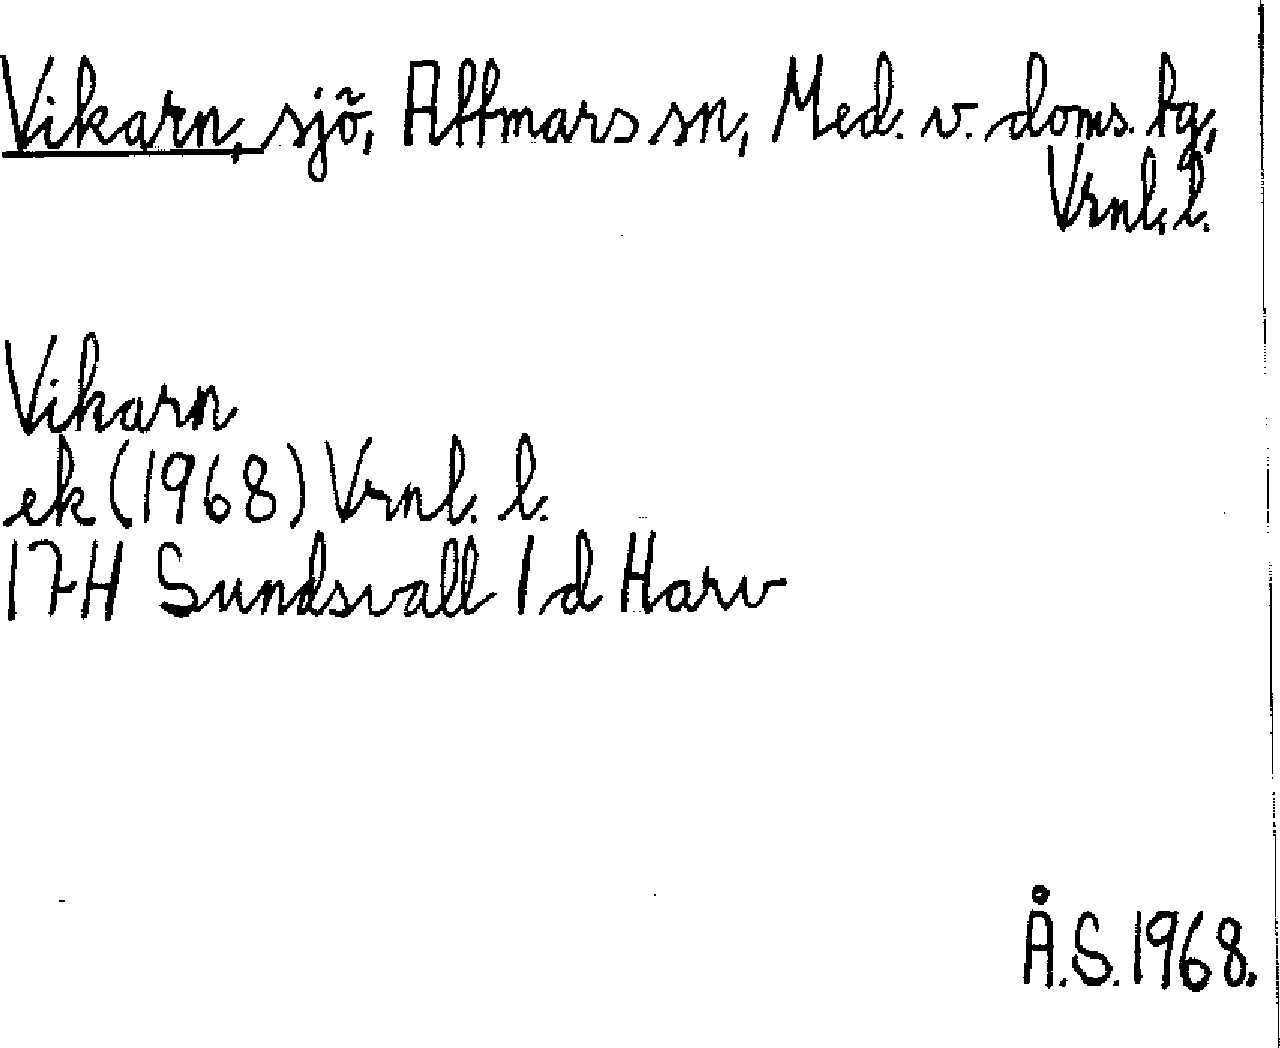 Vikarn, sjö, Attmars sn, Med. v. doms. tg,
Vrnl. l.
Vikarn
ek (1968) Vrnl. l.
17H Sundsvall 1 d Harv
Å.S. 1968.